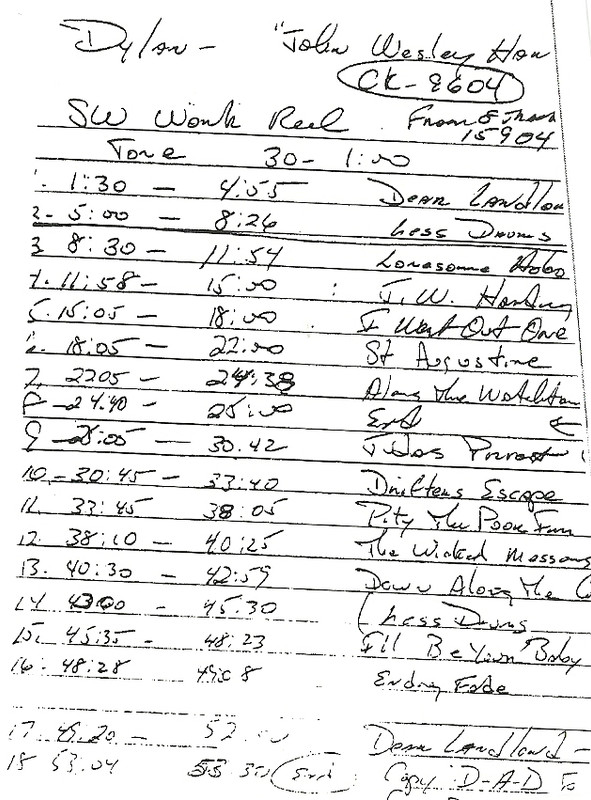 Dylan - "John Wesley Har
CK-9604
SW Work Reel From
15904
Tone 30 - 1:00
1. 1:30 - 4:55 Dear Landlor
2. 5:00 - 8:26 Less Drums
3. 8:30 - 11:54 Lonesome Hobo
4. 11:58 - 15:00 : J.W. Harding
5. 15:05 - 18:00 I Went Out One
6. 18:05 - 22:00 St Augustine
7. 2205 - 24:38 Along the Watchtow
8 - 24.40 - 25:00 End
9 - 25:05 - 30.42 Judas Priest
10. - 30:45 - 33:40 Drifters Escape
11. 33:45 38:05 Pity the Poor Imm
12. 38:10 - 40:25 The Wicked Messeng
13. 40:30 - 42:59 Down Along the C
14 4300 - 45.30 (Less Drums
15. 45:35 - 48:23 I'll Be Your Baby
16. 48:28 Ending Fade
17. 49.20 - Dear Landlord -
18 53.04 Copy D-A-D To